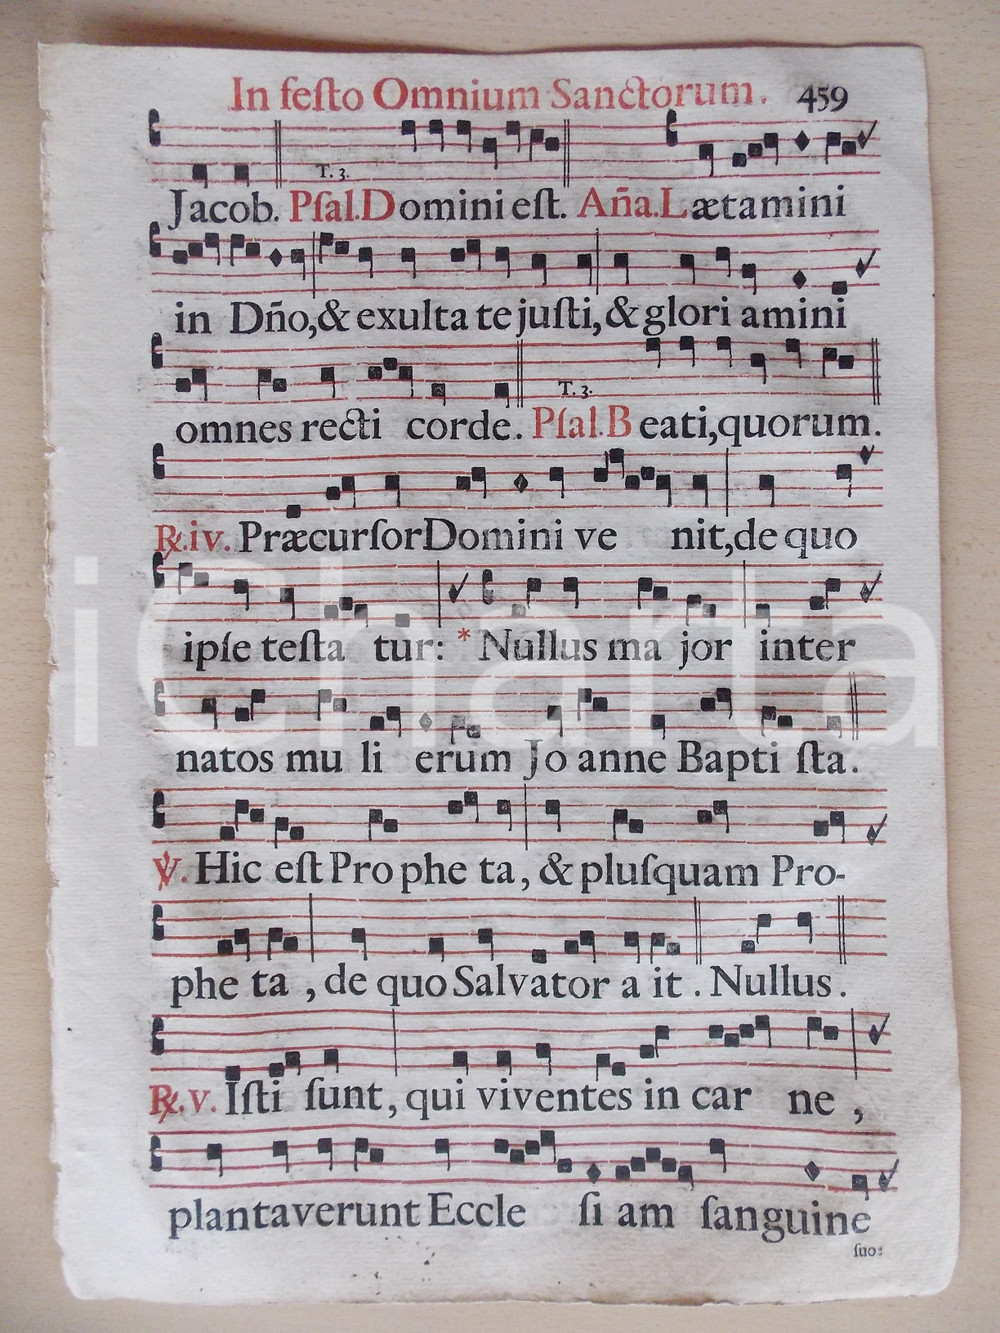 In feſto Omnium Sanctorum. 459
T. 3.
Jacob. Pſal. Domini eſt. Aña. Lætamini
in Dño, & exulta te juſti, & glori amini
T. 3.
omnes recti corde. Pſal. Beati, quorum.
℟. iv. Præcurſor Domini ve nit, de quo
ipſe teſta tur: * Nullus ma jor inter
natos mu li erum Jo anne Bapti ſta.
℣. Hic eſt Pro phe ta, & pluſquam Pro-
phe ta, de quo Salvator a it. Nullus.
℟. v. Iſti ſunt, qui viventes in car ne,
plantaverunt Eccle ſi am ſanguine
ſuo:
iCharta